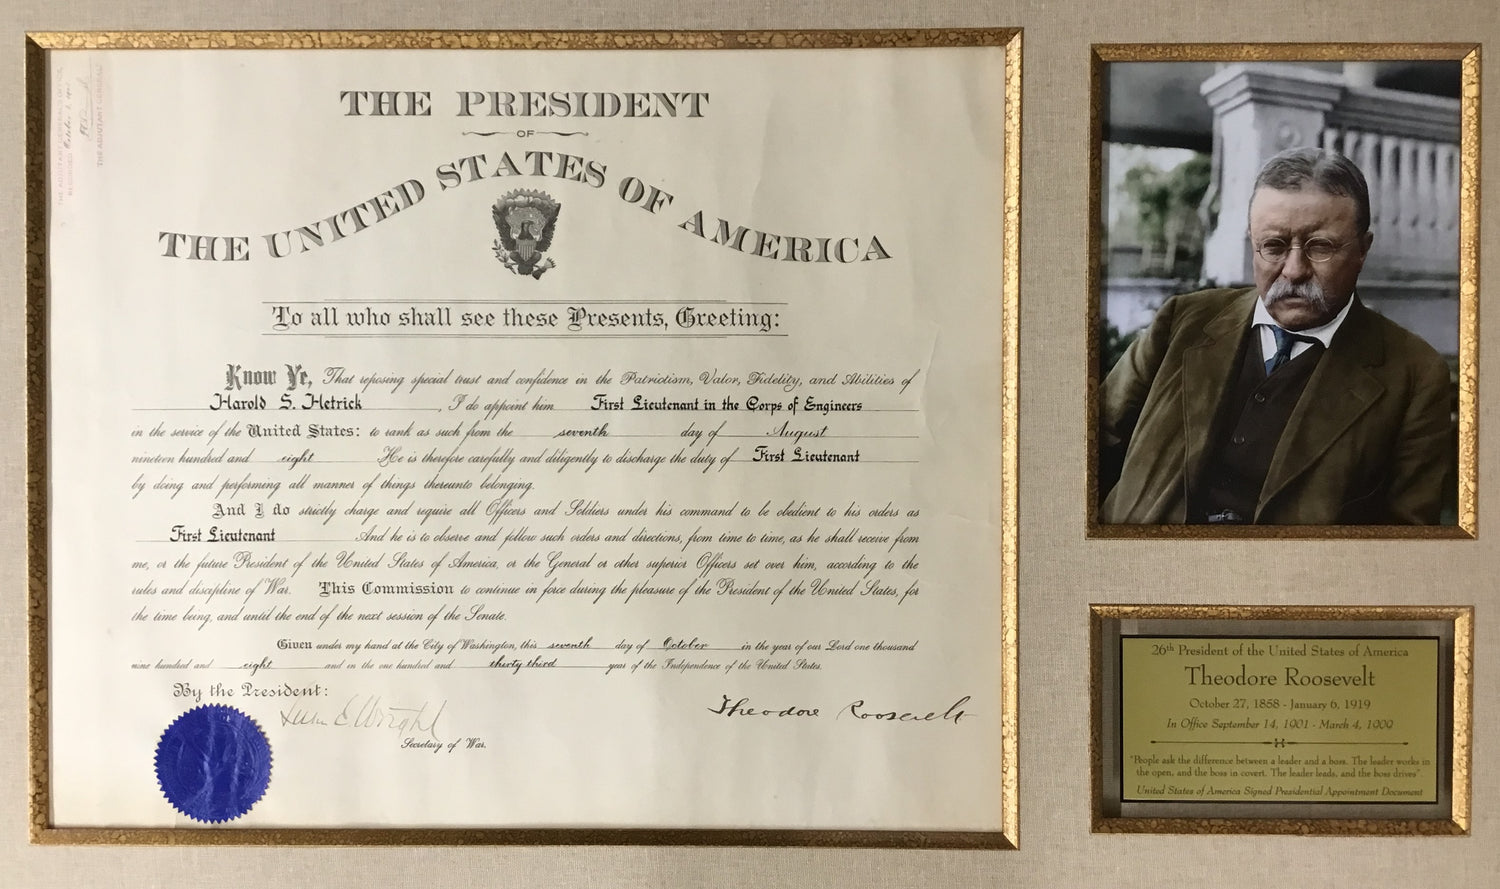 THE ADJUTANT GENERAL'S OFFICE,
RECORDED October
THE ADJUTANT GENERAL.
THE PRESIDENT
OF
THE UNITED STATES OF AMERICA
To all who shall see these Presents, Greeting:
Know Ye, That reposing special trust and confidence in the Patriotism, Valor, Fidelity, and Abilities of
Harold S. Hetrick, I do appoint him First Lieutenant in the Corps of Engineers
in the service of the United States: to rank as such from the seventh day of August
nineteen hundred and eight He is therefore carefully and diligently to discharge the duty of First Lieutenant
by doing and performing all manner of things thereunto belonging.
And I do strictly charge and require all Officers and Soldiers under his command to be obedient to his orders as
First Lieutenant And he is to observe and follow such orders and directions, from time to time, as he shall receive from
me, or the future President of the United States of America, or the General or other superior Officers set over him, according to the
rules and discipline of War. This Commission to continue in force during the pleasure of the President of the United States, for
the time being, and until the end of the next session of the Senate.
Given under my hand at the City of Washington, this seventh day of October in the year of our Lord one thousand
nine hundred and eight and in the one hundred and thirty third year of the Independence of the United States.
By the President:
Luke E. Wright
Theodore Roosevelt
Secretary of War.
26th President of the United States of America
Theodore Roosevelt
October 27, 1858 - January 6, 1919
In Office September 14, 1901 - March 4, 1909
"People ask the difference between a leader and a boss. The leader works in
the open, and the boss in covert. The leader leads, and the boss drives".
United States of America Signed Presidential Appointment Document